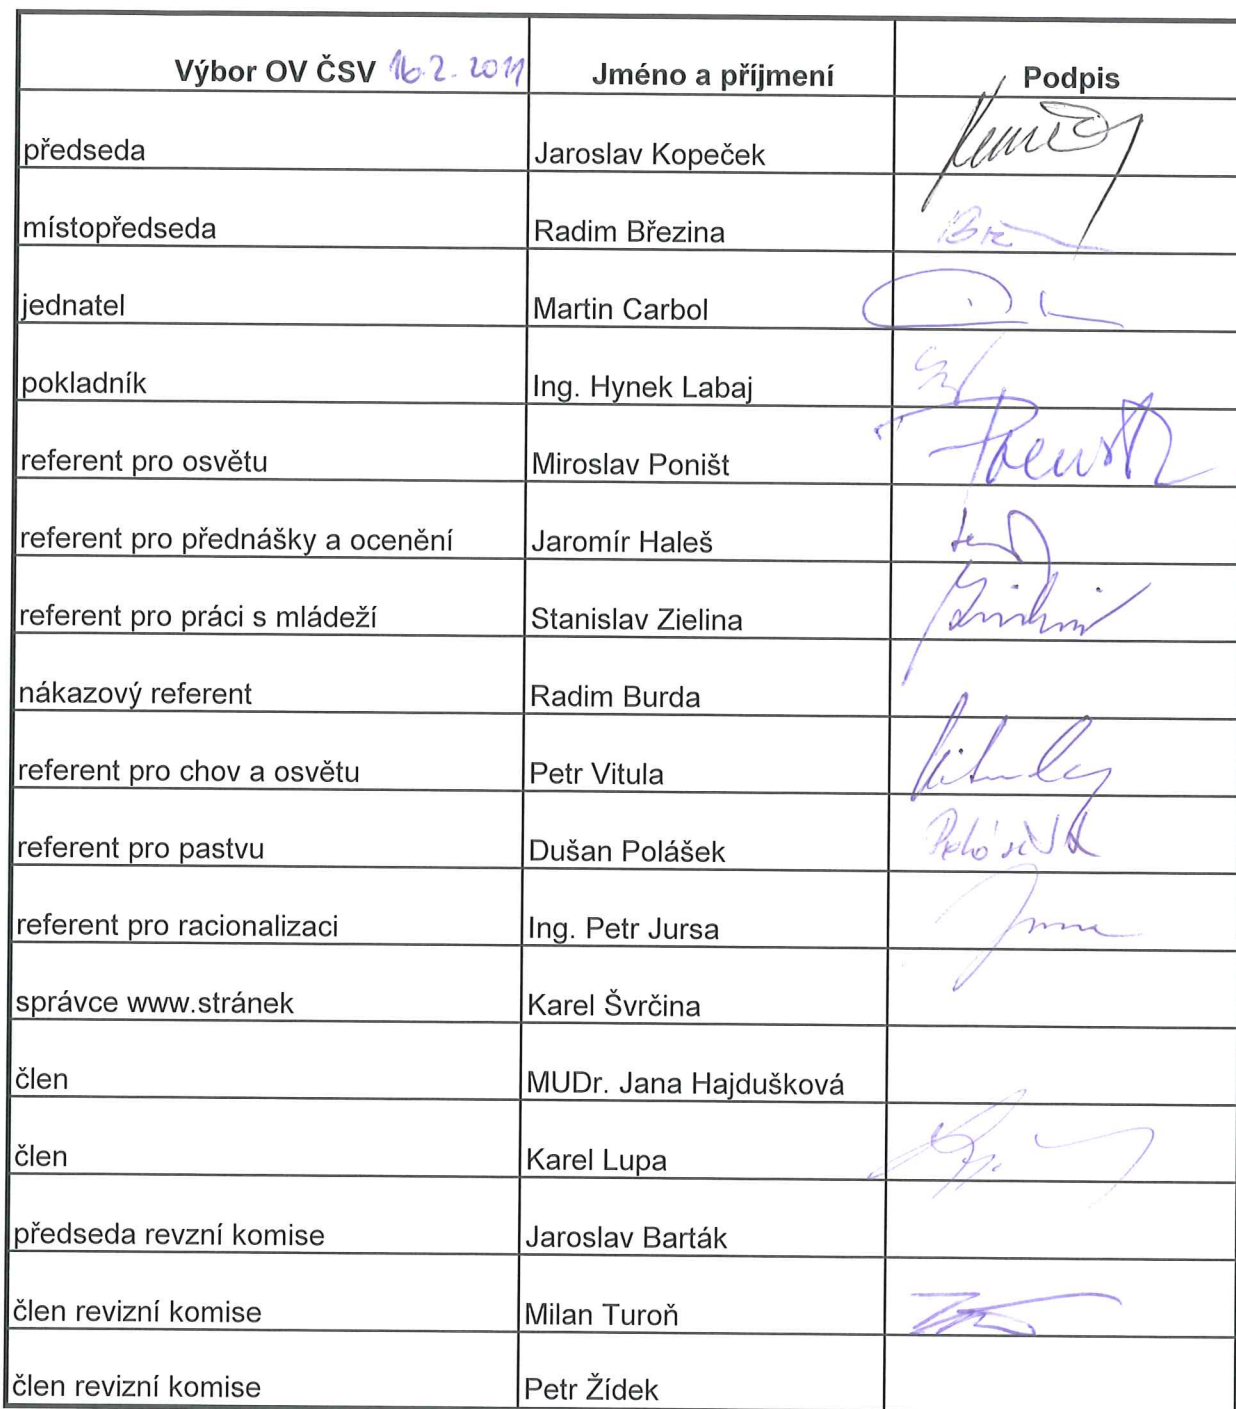 Výbor OV ČSV 16.2.2011 Jméno a příjmení Podpis
předseda Jaroslav Kopeček
místopředseda Radim Březina
jednatel Martin Carbol
pokladník Ing. Hynek Labaj
referent pro osvětu Miroslav Poništ
referent pro přednášky a ocenění Jaromír Haleš
referent pro práci s mládeží Stanislav Zielina
nákazový referent Radim Burda
referent pro chov a osvětu Petr Vitula
referent pro pastvu Dušan Polášek
referent pro racionalizaci Ing. Petr Jursa
správce www.stránek Karel Švrčina
člen MUDr. Jana Hajdušková
člen Karel Lupa
předseda revzní komise Jaroslav Barták
člen revizní komise Milan Turoň
člen revizní komise Petr Žídek